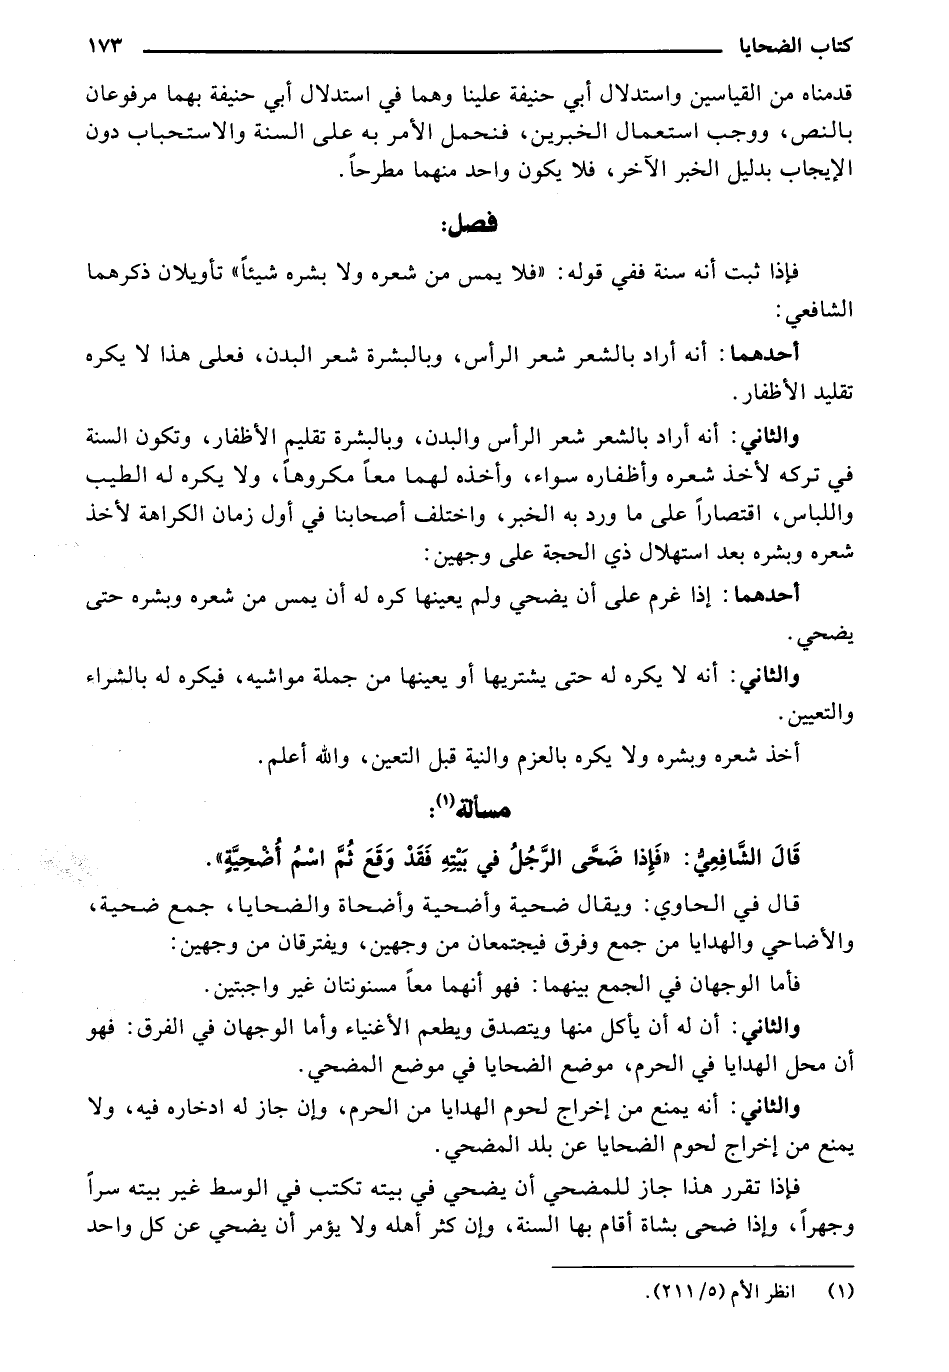 كتاب الضحايا ١٧٣
قدمناه من القياسين واستدلال أبي حنيفة علينا وهما في استدلال أبي حنيفة بهما مرفوعان
بالنص، ووجب استعمال الخبرين، فنحمل الأمر به على السنة والاستحباب دون
الإيجاب بدليل الخبر الآخر، فلا يكون واحد منهما مطرحاً.
فصل:
فإذا ثبت أنه سنة ففي قوله: «فلا يمس من شعره ولا بشره شيئاً» تأويلان ذكرهما
الشافعي:
أحدهما: أنه أراد بالشعر شعر الرأس، وبالبشرة شعر البدن، فعلى هذا لا يكره
تقليد الأظفار.
والثاني: أنه أراد بالشعر شعر الرأس والبدن، وبالبشرة تقليم الأظفار، وتكون السنة
في تركه لأخذ شعره وأظفاره سواء، وأخذه لهما معاً مكروهاً، ولا يكره له الطيب
واللباس، اقتصاراً على ما ورد به الخبر، واختلف أصحابنا في أول زمان الكراهة لأخذ
شعره وبشره بعد استهلال ذي الحجة على وجهين:
أحدهما: إذا غرم على أن يضحي ولم يعينها كره له أن يمس من شعره وبشره حتى
يضحي.
والثاني: أنه لا يكره له حتى يشتريها أو يعينها من جملة مواشيه، فيكره له بالشراء
والتعيين.
أخذ شعره وبشره ولا يكره بالعزم والنية قبل التعين، والله أعلم.
مسألة(١):
قَالَ الشَّافِعِيُّ: «فَإِذا ضَحَّى الرَّجُلُ في بَيْتِهِ فَقَدْ وَقَعَ ثُمَّ اسْمُ أُضْحِيَّةٍ».
قال في الحاوي: ويقال ضحية وأضحية وأضحاة والضحايا، جمع ضحية،
والأضاحي والهدايا من جمع وفرق فيجتمعان من وجهين، ويفترقان من وجهين:
فأما الوجهان في الجمع بينهما: فهو أنهما معاً مسنونتان غير واجبتين.
والثاني: أن له أن يأكل منها ويتصدق ويطعم الأغنياء وأما الوجهان في الفرق: فهو
أن محل الهدايا في الحرم، موضع الضحايا في موضع المضحي.
والثاني: أنه يمنع من إخراج لحوم الهدايا من الحرم، وإن جاز له ادخاره فيه، ولا
يمنع من إخراج لحوم الضحايا عن بلد المضحي.
فإذا تقرر هذا جاز للمضحي أن يضحي في بيته تكتب في الوسط غير بيته سراً
وجهراً، وإذا ضحى بشاة أقام بها السنة، وإن كثر أهله ولا يؤمر أن يضحي عن كل واحد
(١) انظر الأم (٢١١/٥).